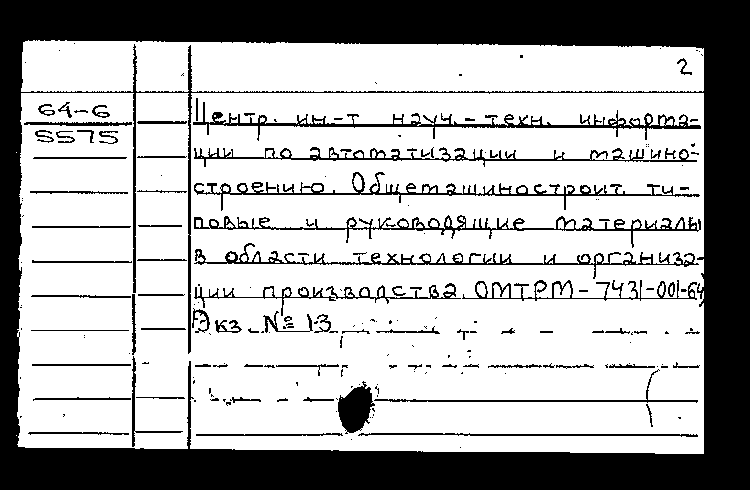 2
64-6
5575
Центр. ин.-т науч.-техн. информа-
ции по автоматизации и машино-
строению. Общемашиностроит. ти-
повые и руководящие материалы
в области технологии и организа-
ции производства. ОМТРМ-7431-001-64)
Экз. № 13